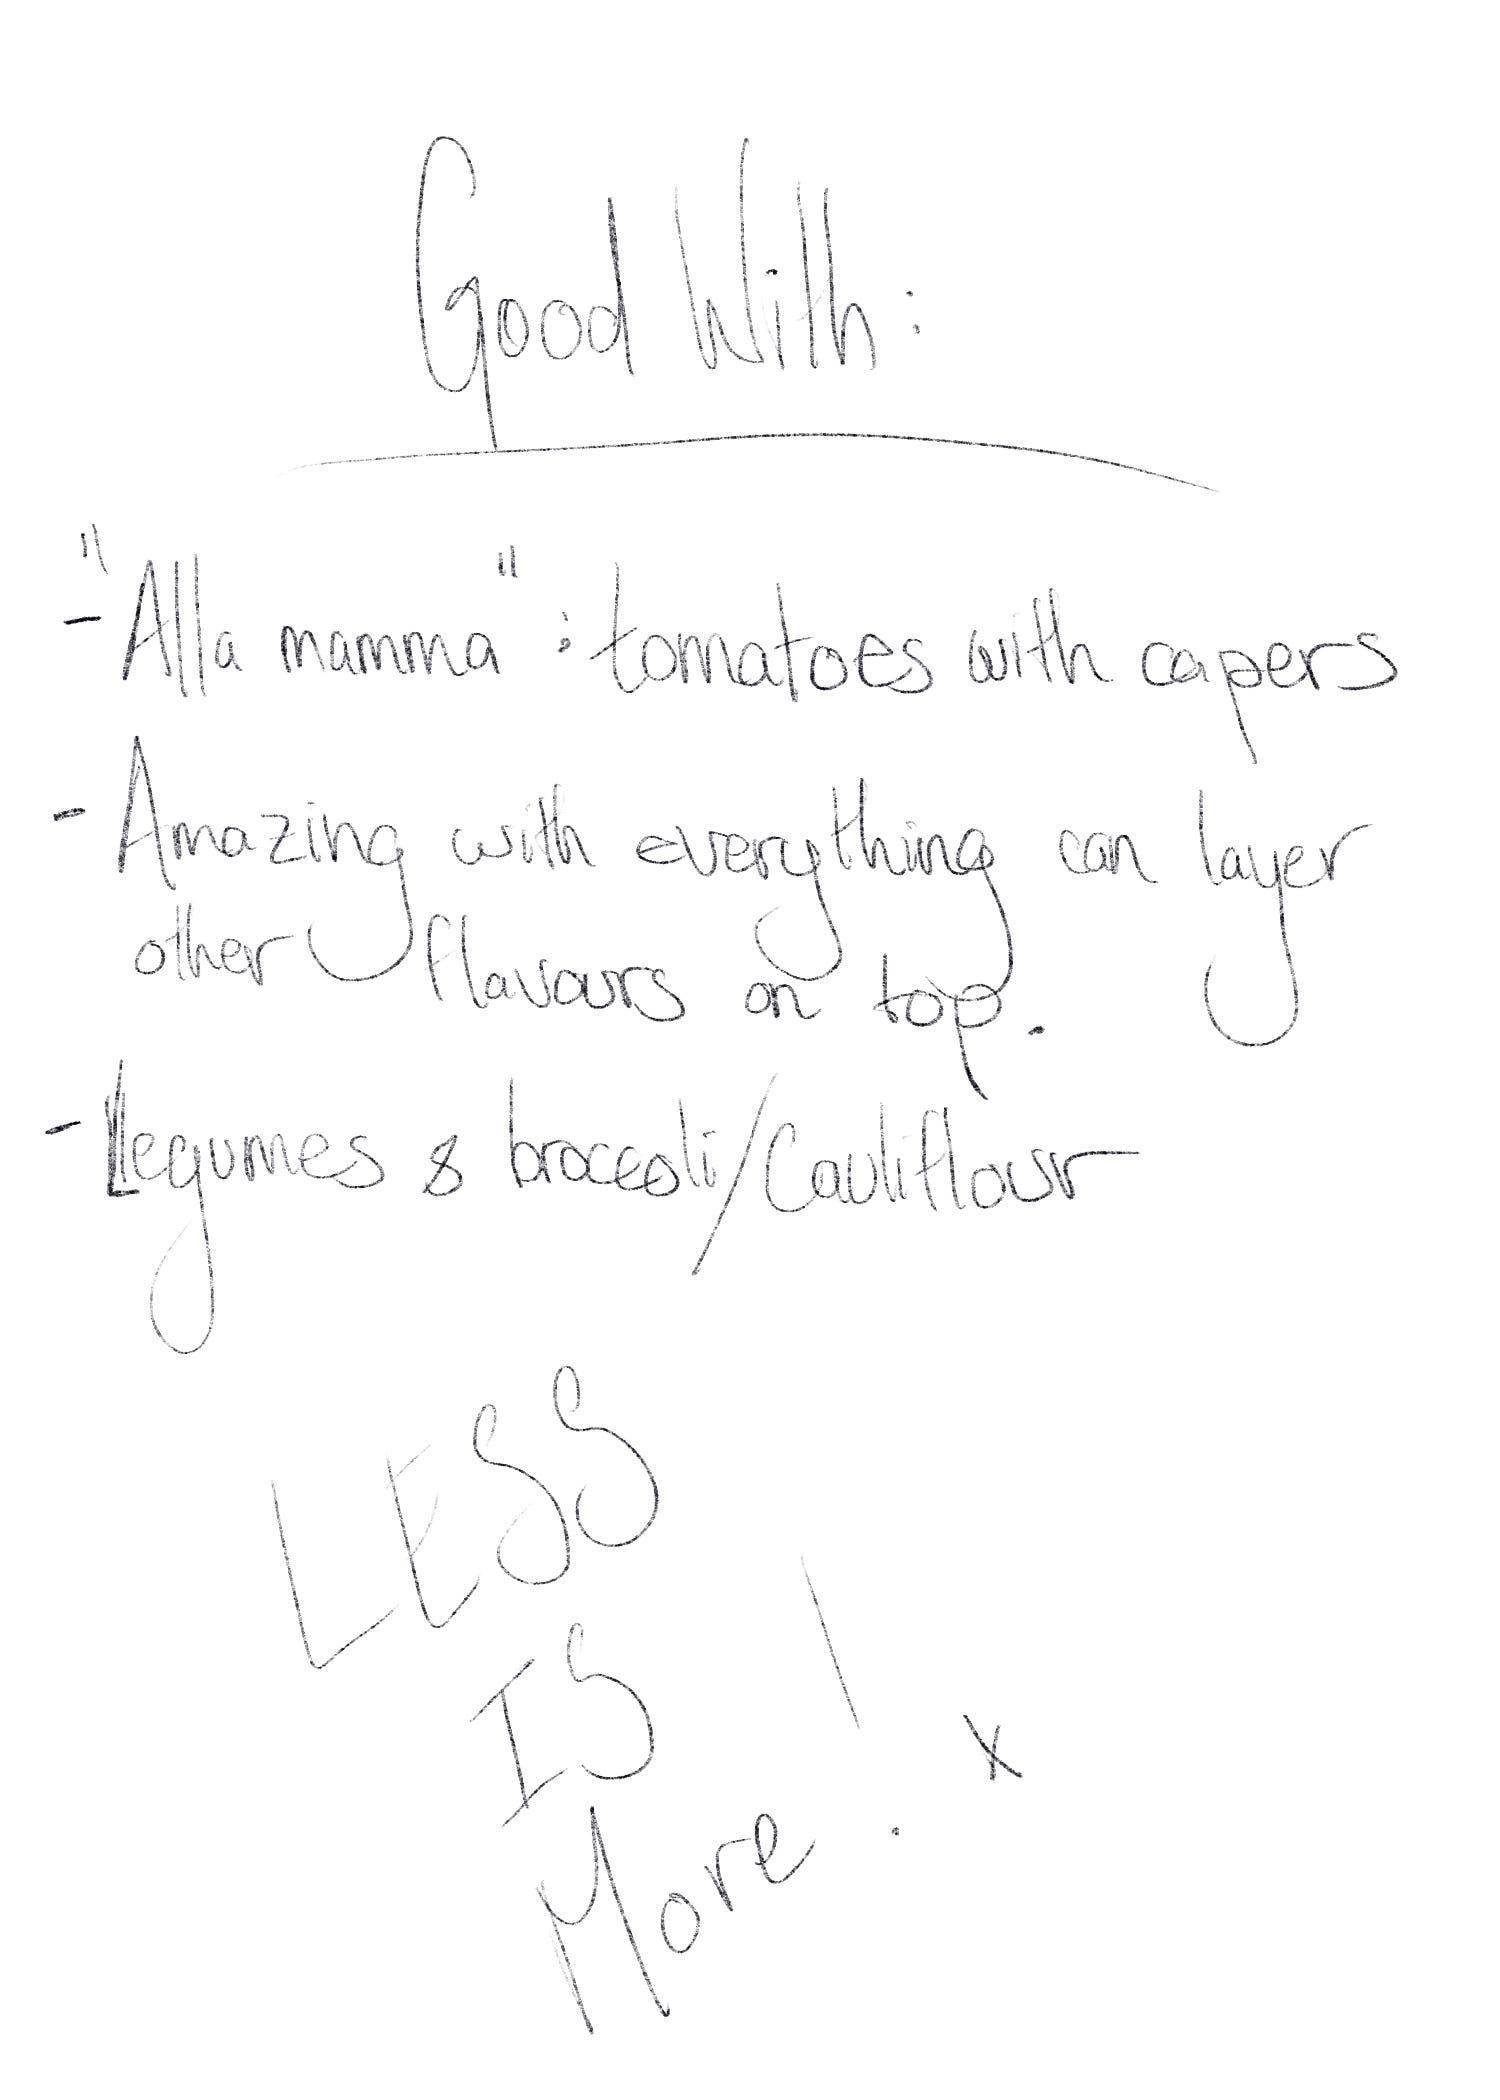 Good With:
- "Alla mamma" : tomatoes with capers
- Amazing with everything can layer
other flavours on top.
- Legumes & broccoli/Cauliflour
LESS
IS
More ! x